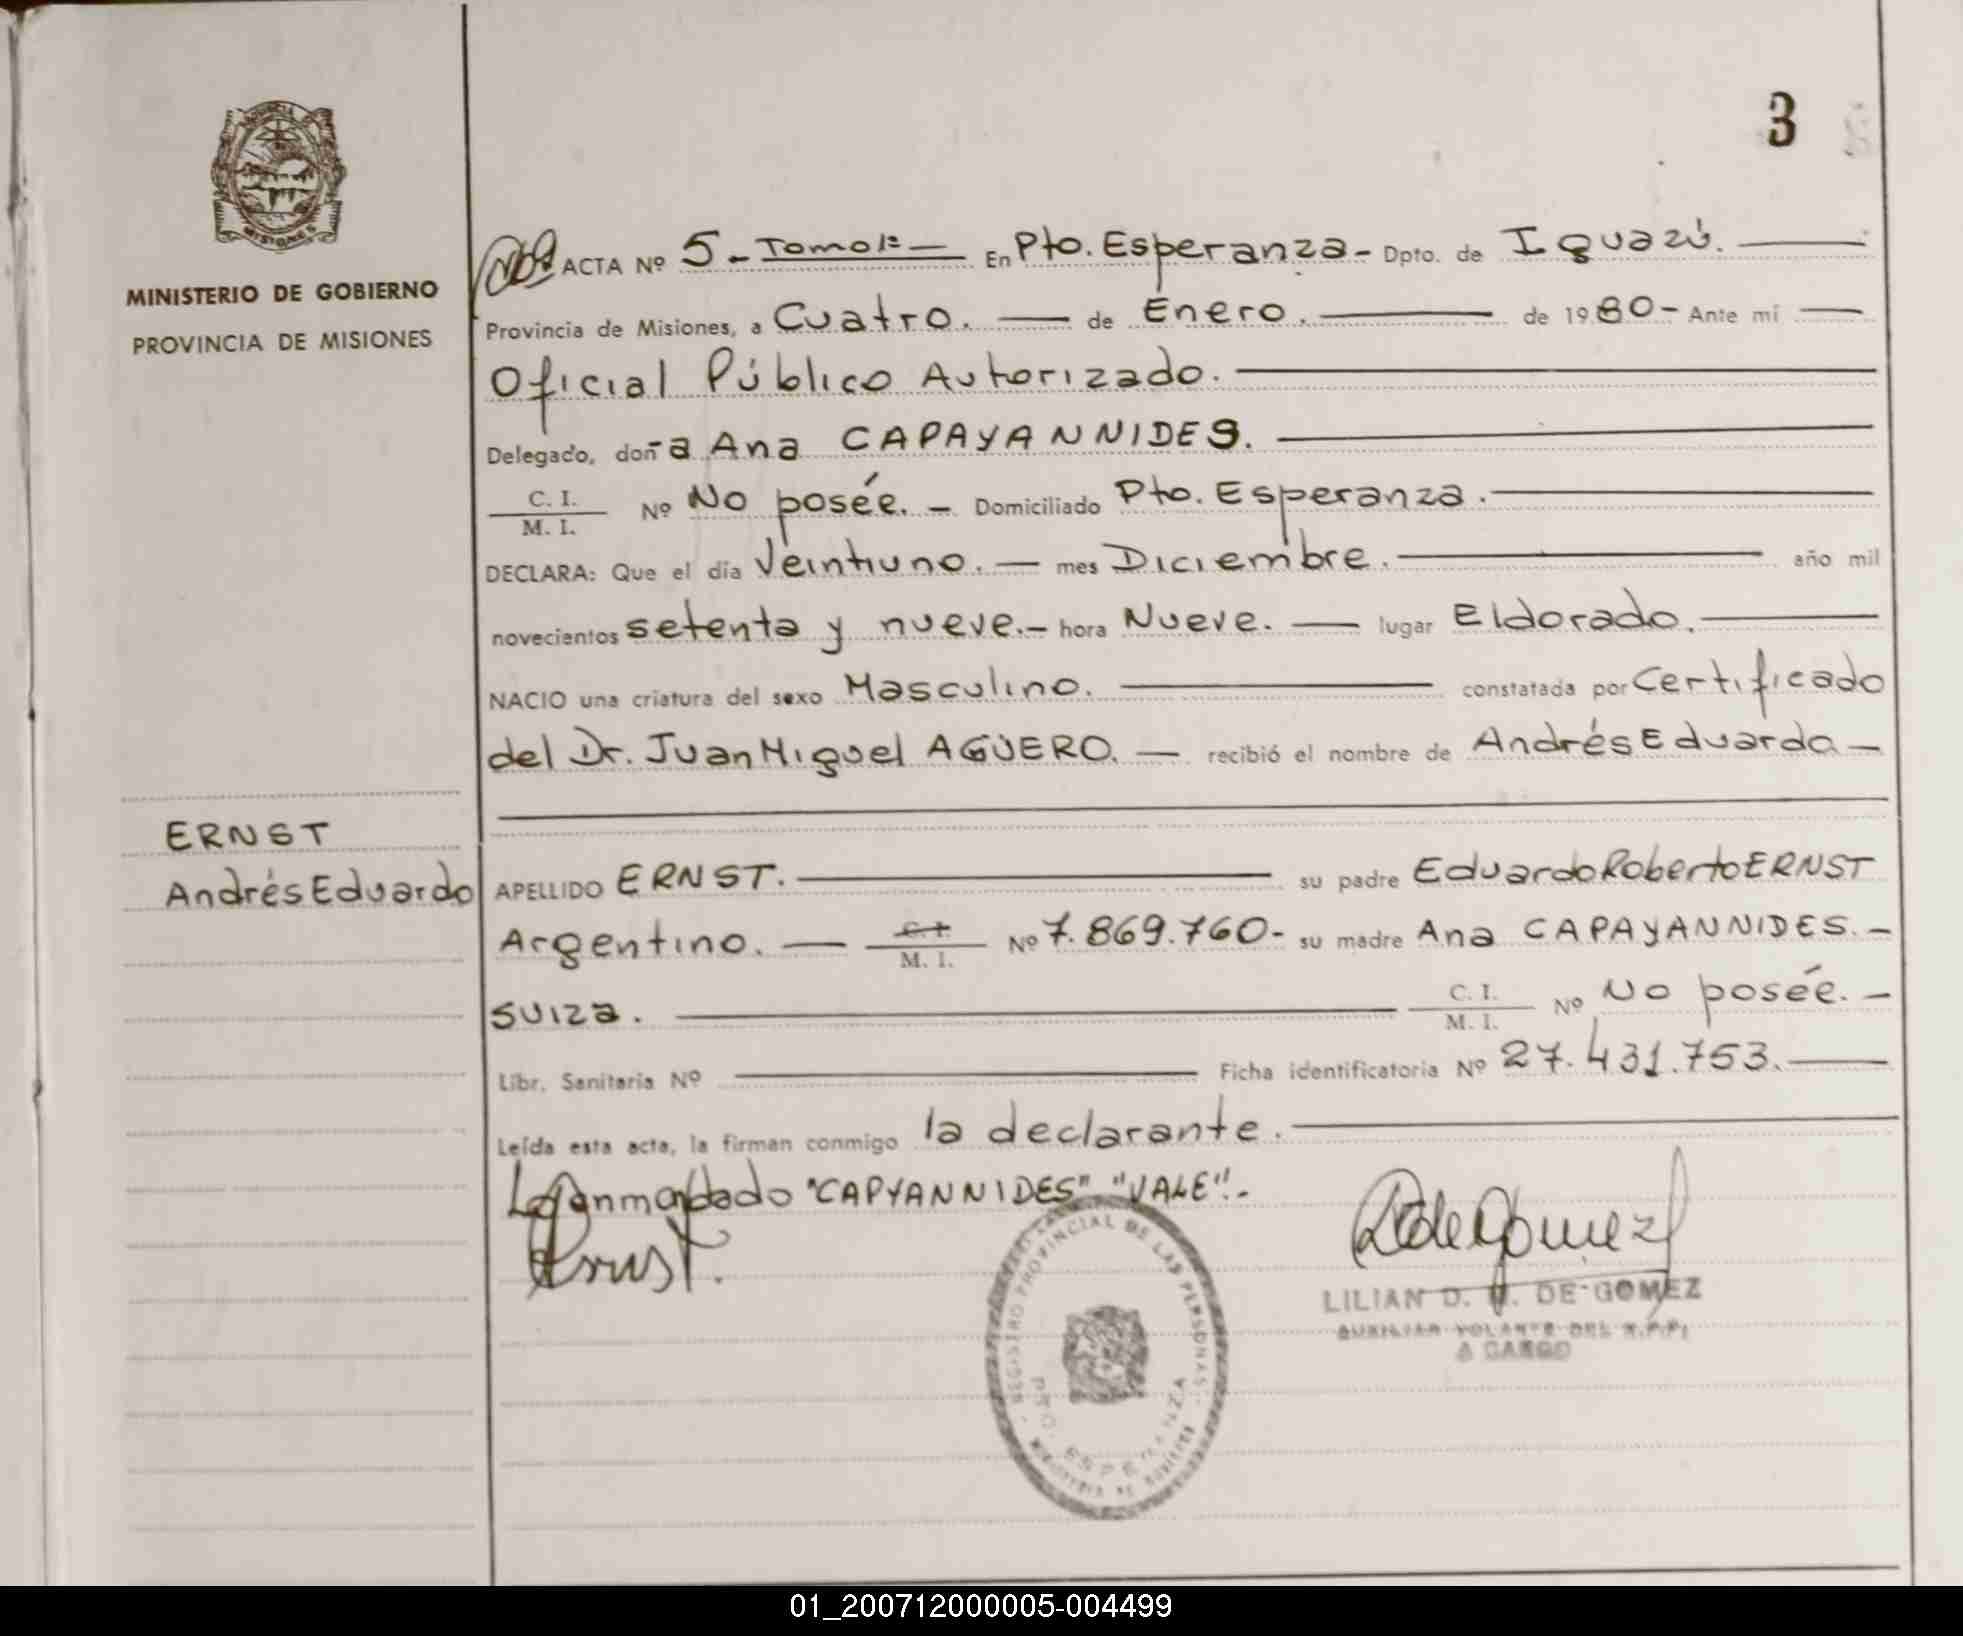 3
PROVINCIA
MISIONES
MINISTERIO DE GOBIERNO
PROVINCIA DE MISIONES
ACTA Nº 5 - Tomo 1º — En Pto. Esperanza - Dpto. de Iguazú. —
Provincia de Misiones, a Cuatro. — de Enero. — de 1980 - Ante mí —
Oficial Público Autorizado. —
Delegado, doña Ana CAPAYANNIDES. —
C. I.
M. I. Nº No posée. - Domiciliado Pto. Esperanza. —
DECLARA: Que el día Veintiuno. — mes Diciembre. — año mil
novecientos setenta y nueve. - hora Nueve. — lugar Eldorado. —
NACIO una criatura del sexo Masculino. — constatada por Certificado
del Dr. Juan Miguel AGÜERO. — recibió el nombre de Andrés Eduardo —
ERNST
Andrés Eduardo
APELLIDO ERNST. — su padre Eduardo Roberto ERNST
Argentino. — C. I.
M. I. Nº 7.869.760 - su madre Ana CAPAYANNIDES. -
suiza. — C. I.
M. I. Nº No posée. -
Libr. Sanitaria Nº — Ficha identificatoria Nº 27.431.753. —
Leída esta acta, la firman conmigo la declarante. —
Lo enmendado "CAPYANNIDES" "VALE". -
Ernst.
REGISTRO PROVINCIAL DE LAS PERSONAS
PTO. ESPERANZA
LILIAN D. DE GOMEZ
AUXILIAR VOLANTE DEL R.P.P.
A CARGO
01_200712000005-004499